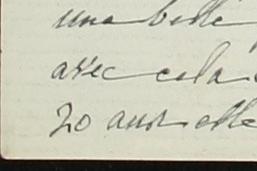 une belle
avec cela
20 ans elle